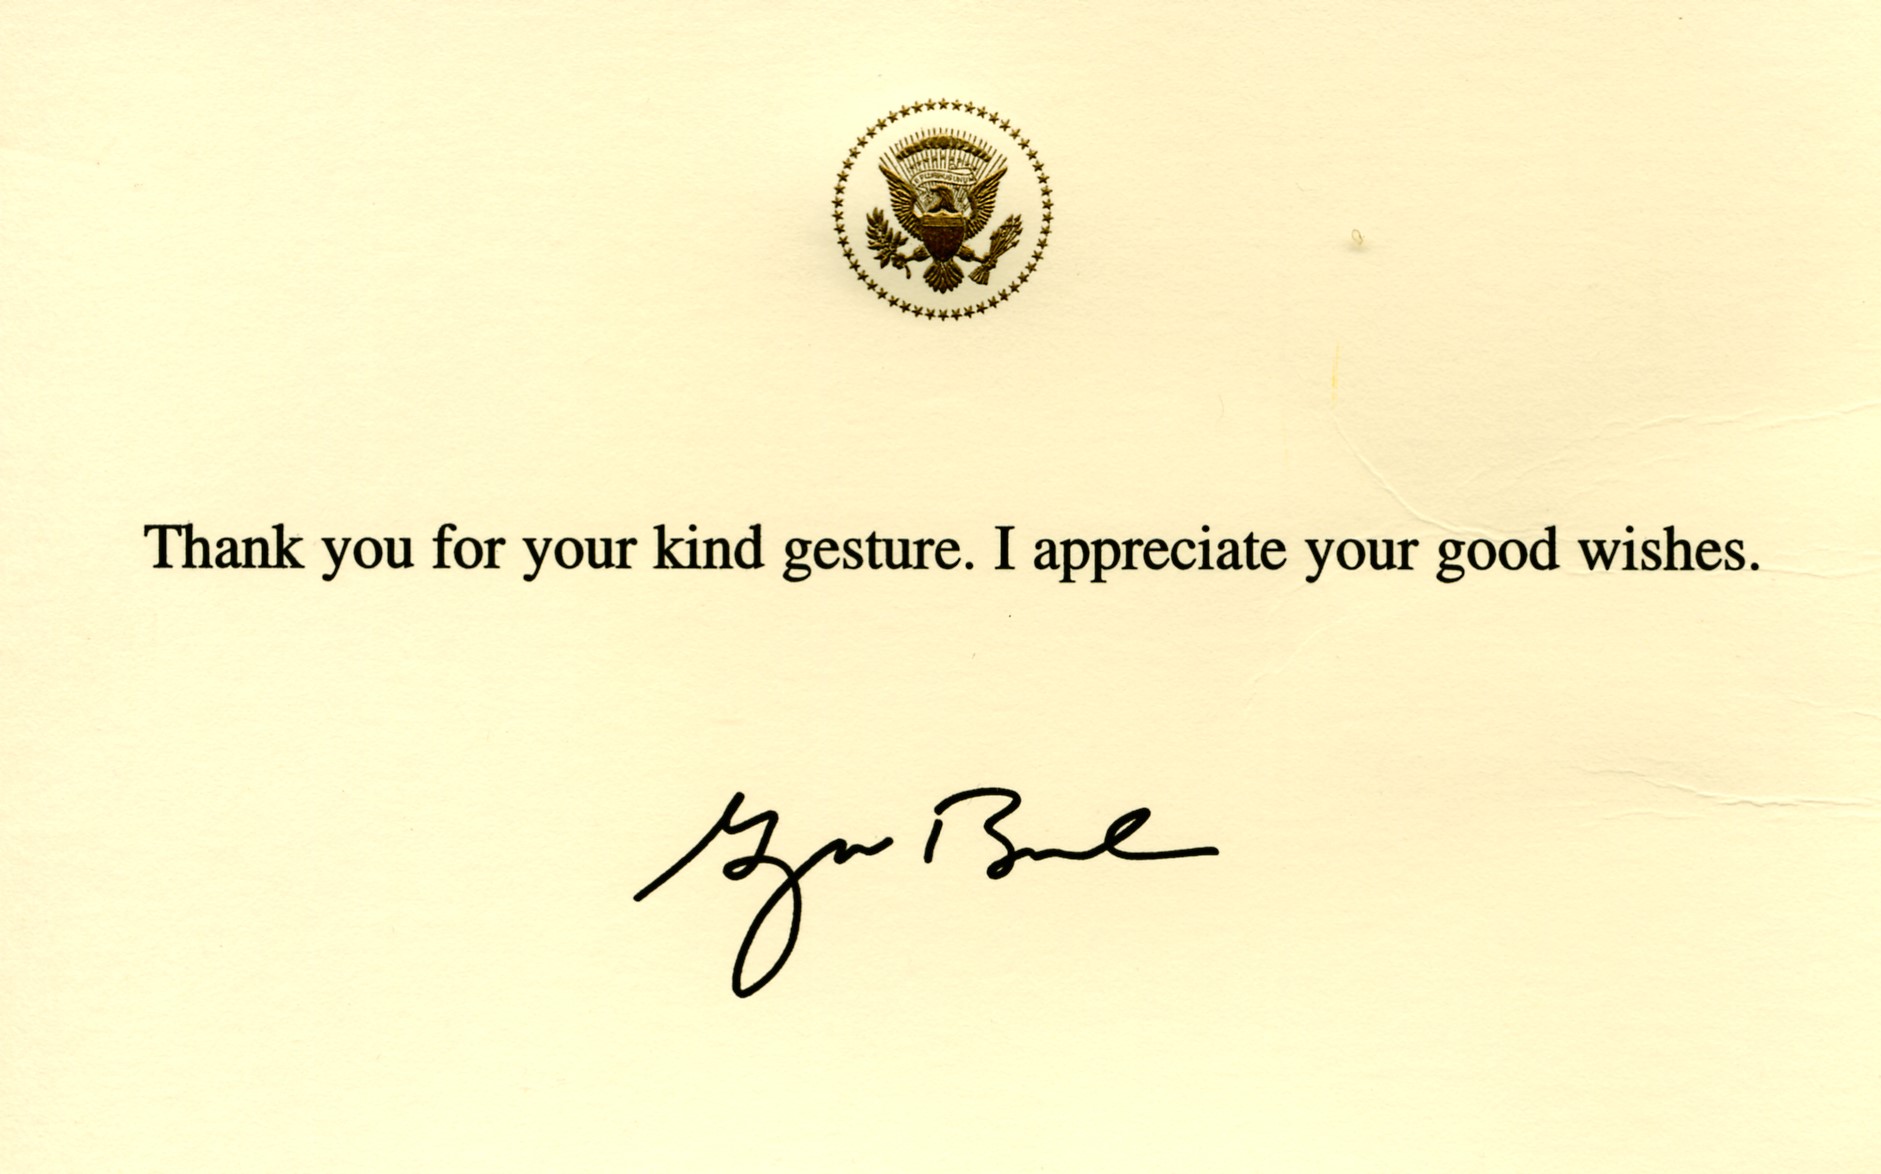 E PLURIBUS UNUM
Thank you for your kind gesture. I appreciate your good wishes.